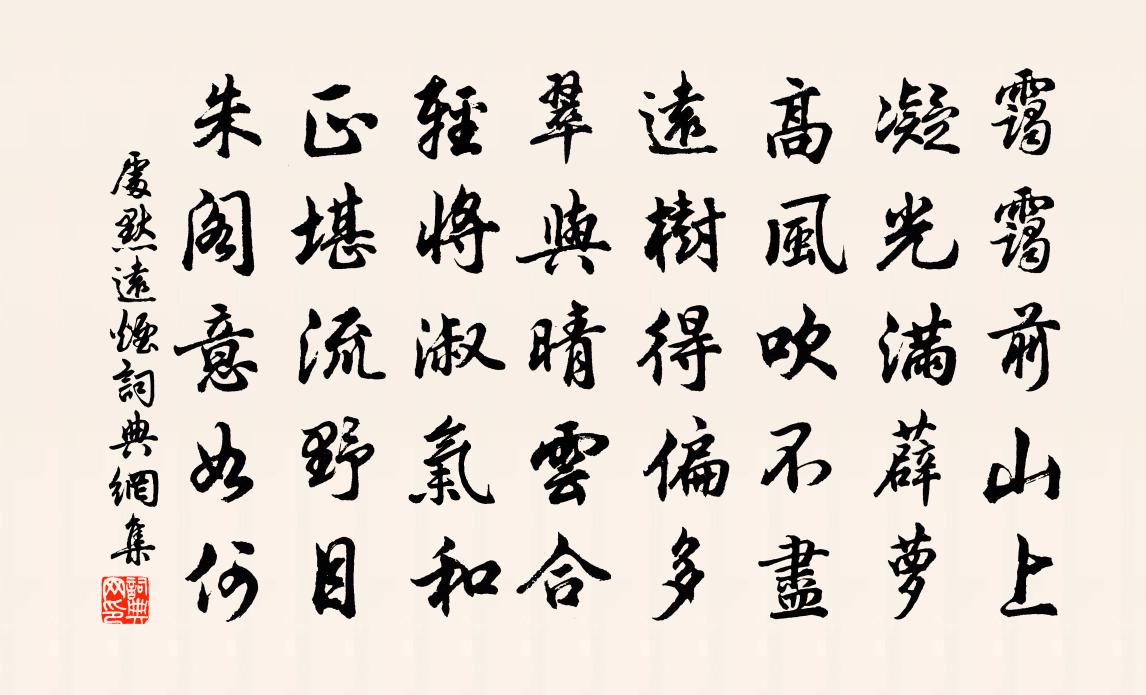 靄靄前山上
凝光滿薜蘿
高風吹不盡
遠樹得偏多
翠與晴雲合
輕將淑氣和
正堪流野目
朱閣意如何
處默遠煙詞典網集
詞典網印